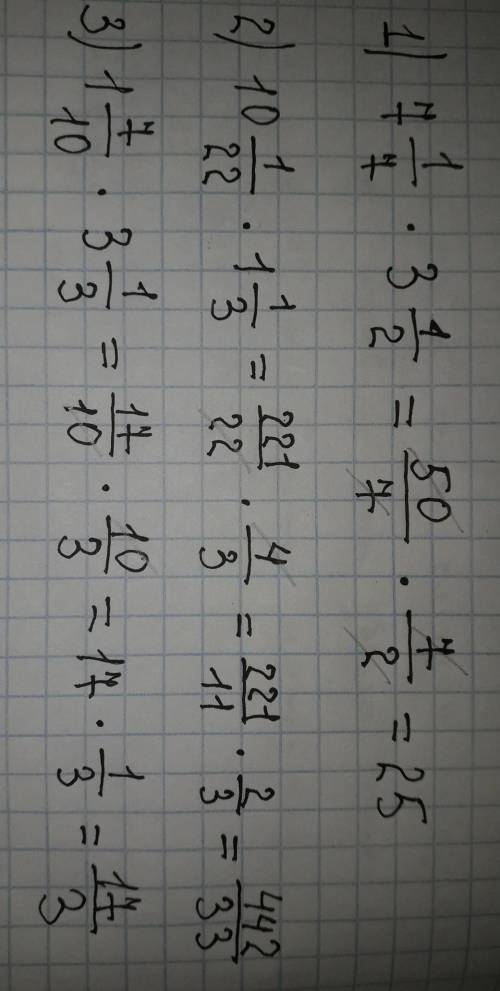 1) 7 1/7 · 3 1/2 = 50/7 · 7/2 = 25
2) 10 1/22 · 1 1/3 = 221/22 · 4/3 = 221/11 · 2/3 = 442/33
3) 1 7/10 · 3 1/3 = 17/10 · 10/3 = 17 · 1/3 = 17/3